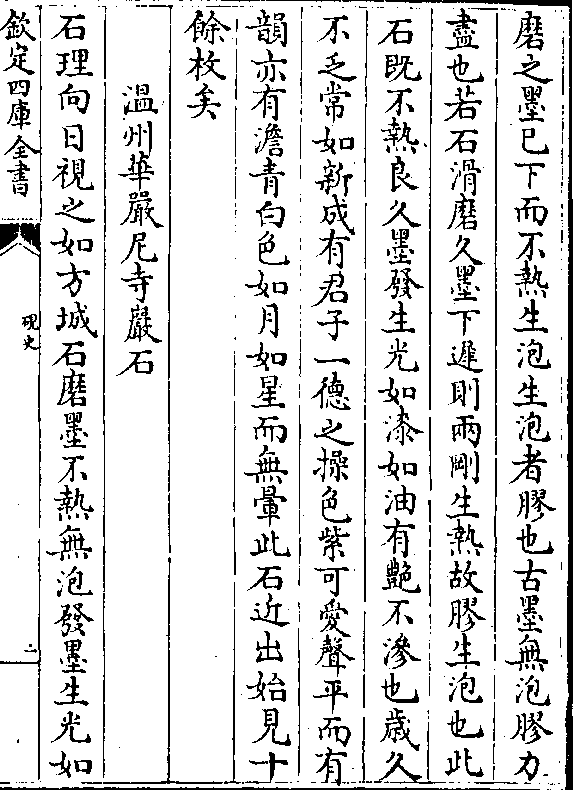 磨之墨已下而不熱生泡生泡者膠也古墨無泡膠力
盡也若石滑磨久墨下遲則兩剛生熱故膠生泡也此
石既不熱良久墨發生光如漆如油有艶不滲也歳久
不乏常如新成有君子一德之操色紫可愛聲平而有
韻亦有澹青白色如月如星而無暈此石近出始見十
餘枚矣
溫州華嚴尼寺巖石
石理向日視之如方城石磨墨不熱無泡發墨生光如
欽定四庫全書
硯史
二